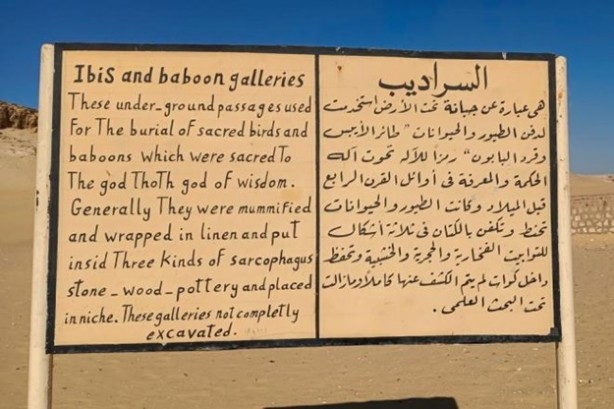 Ibis and baboon galleries
These under-ground passages used
For The burial of sacred birds and
baboons which were sacred To
The god Thoth god of wisdom.
Generally They were mummified
and wrapped in linen and put
insid Three kinds of sarcophagus
stone - wood - pottery and placed
in niche. These galleries not completly
excavated.
السراديب
هى عبارة عن جبانة تحت الأرض استخدمت
لدفن الطيور والحيوانات " طائر الأيبس
وقرد البابون " رمزاً للآله تحوت آله
الحكمة والمعرفة فى أوائل القرن الرابع
قبل الميلاد وكانت الطيور والحيوانات
تحنط وتكفن بالكتان فى ثلاثة أشكال
للتوابيت الفخارية والحجرية والخشبية وتحفظ
داخل كوات لم يتم الكشف عنها كاملاً ومازالت
تحت البحث العلمى .